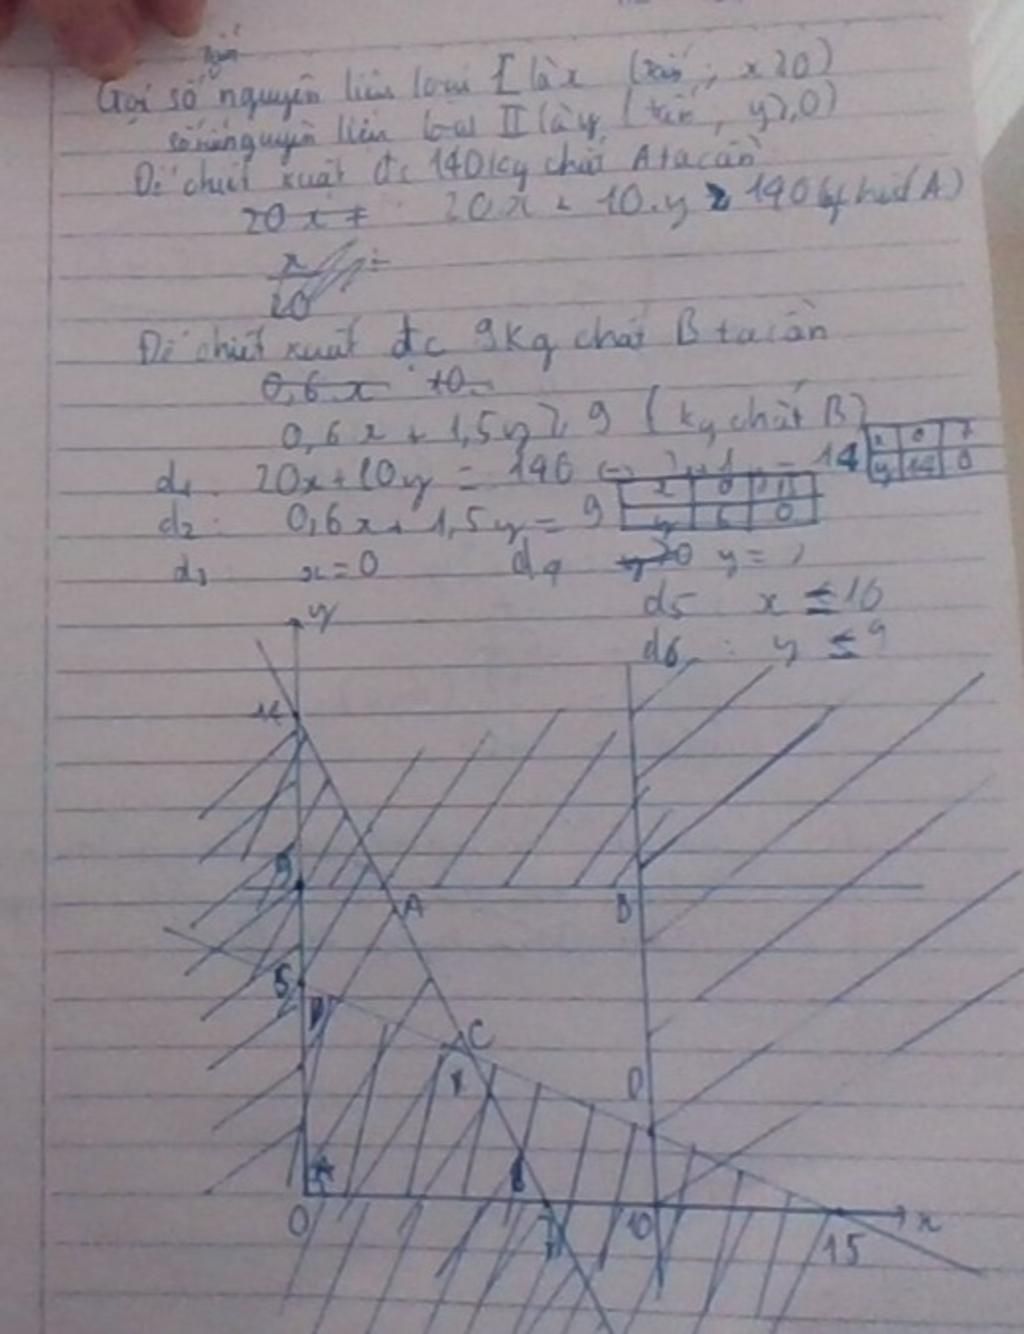 Gọi số nguyên liệu loại I là x (tấn; x≥0)
số nguyên liệu loại II là y (tấn, y≥0)
Để chiết xuất đc 140kg chất A ta cần
20x + 20x + 10.y ≥ 140 (kg chất A)
x
20
Để chiết xuất đc 9Kg chất B ta cần
0,6x +0
0,6x + 1,5y ≥ 9 (kg chất B)
d1 20x+10y = 140 14 x 0 7
y 14 0
d2: 0,6x+1,5y = 9 x 0 15
y 6 0
d3 x=0 d4 y=
d5 x ≤10
d6: y ≤9
y
14
9
A B
6
C
D
O 7 10 15 x